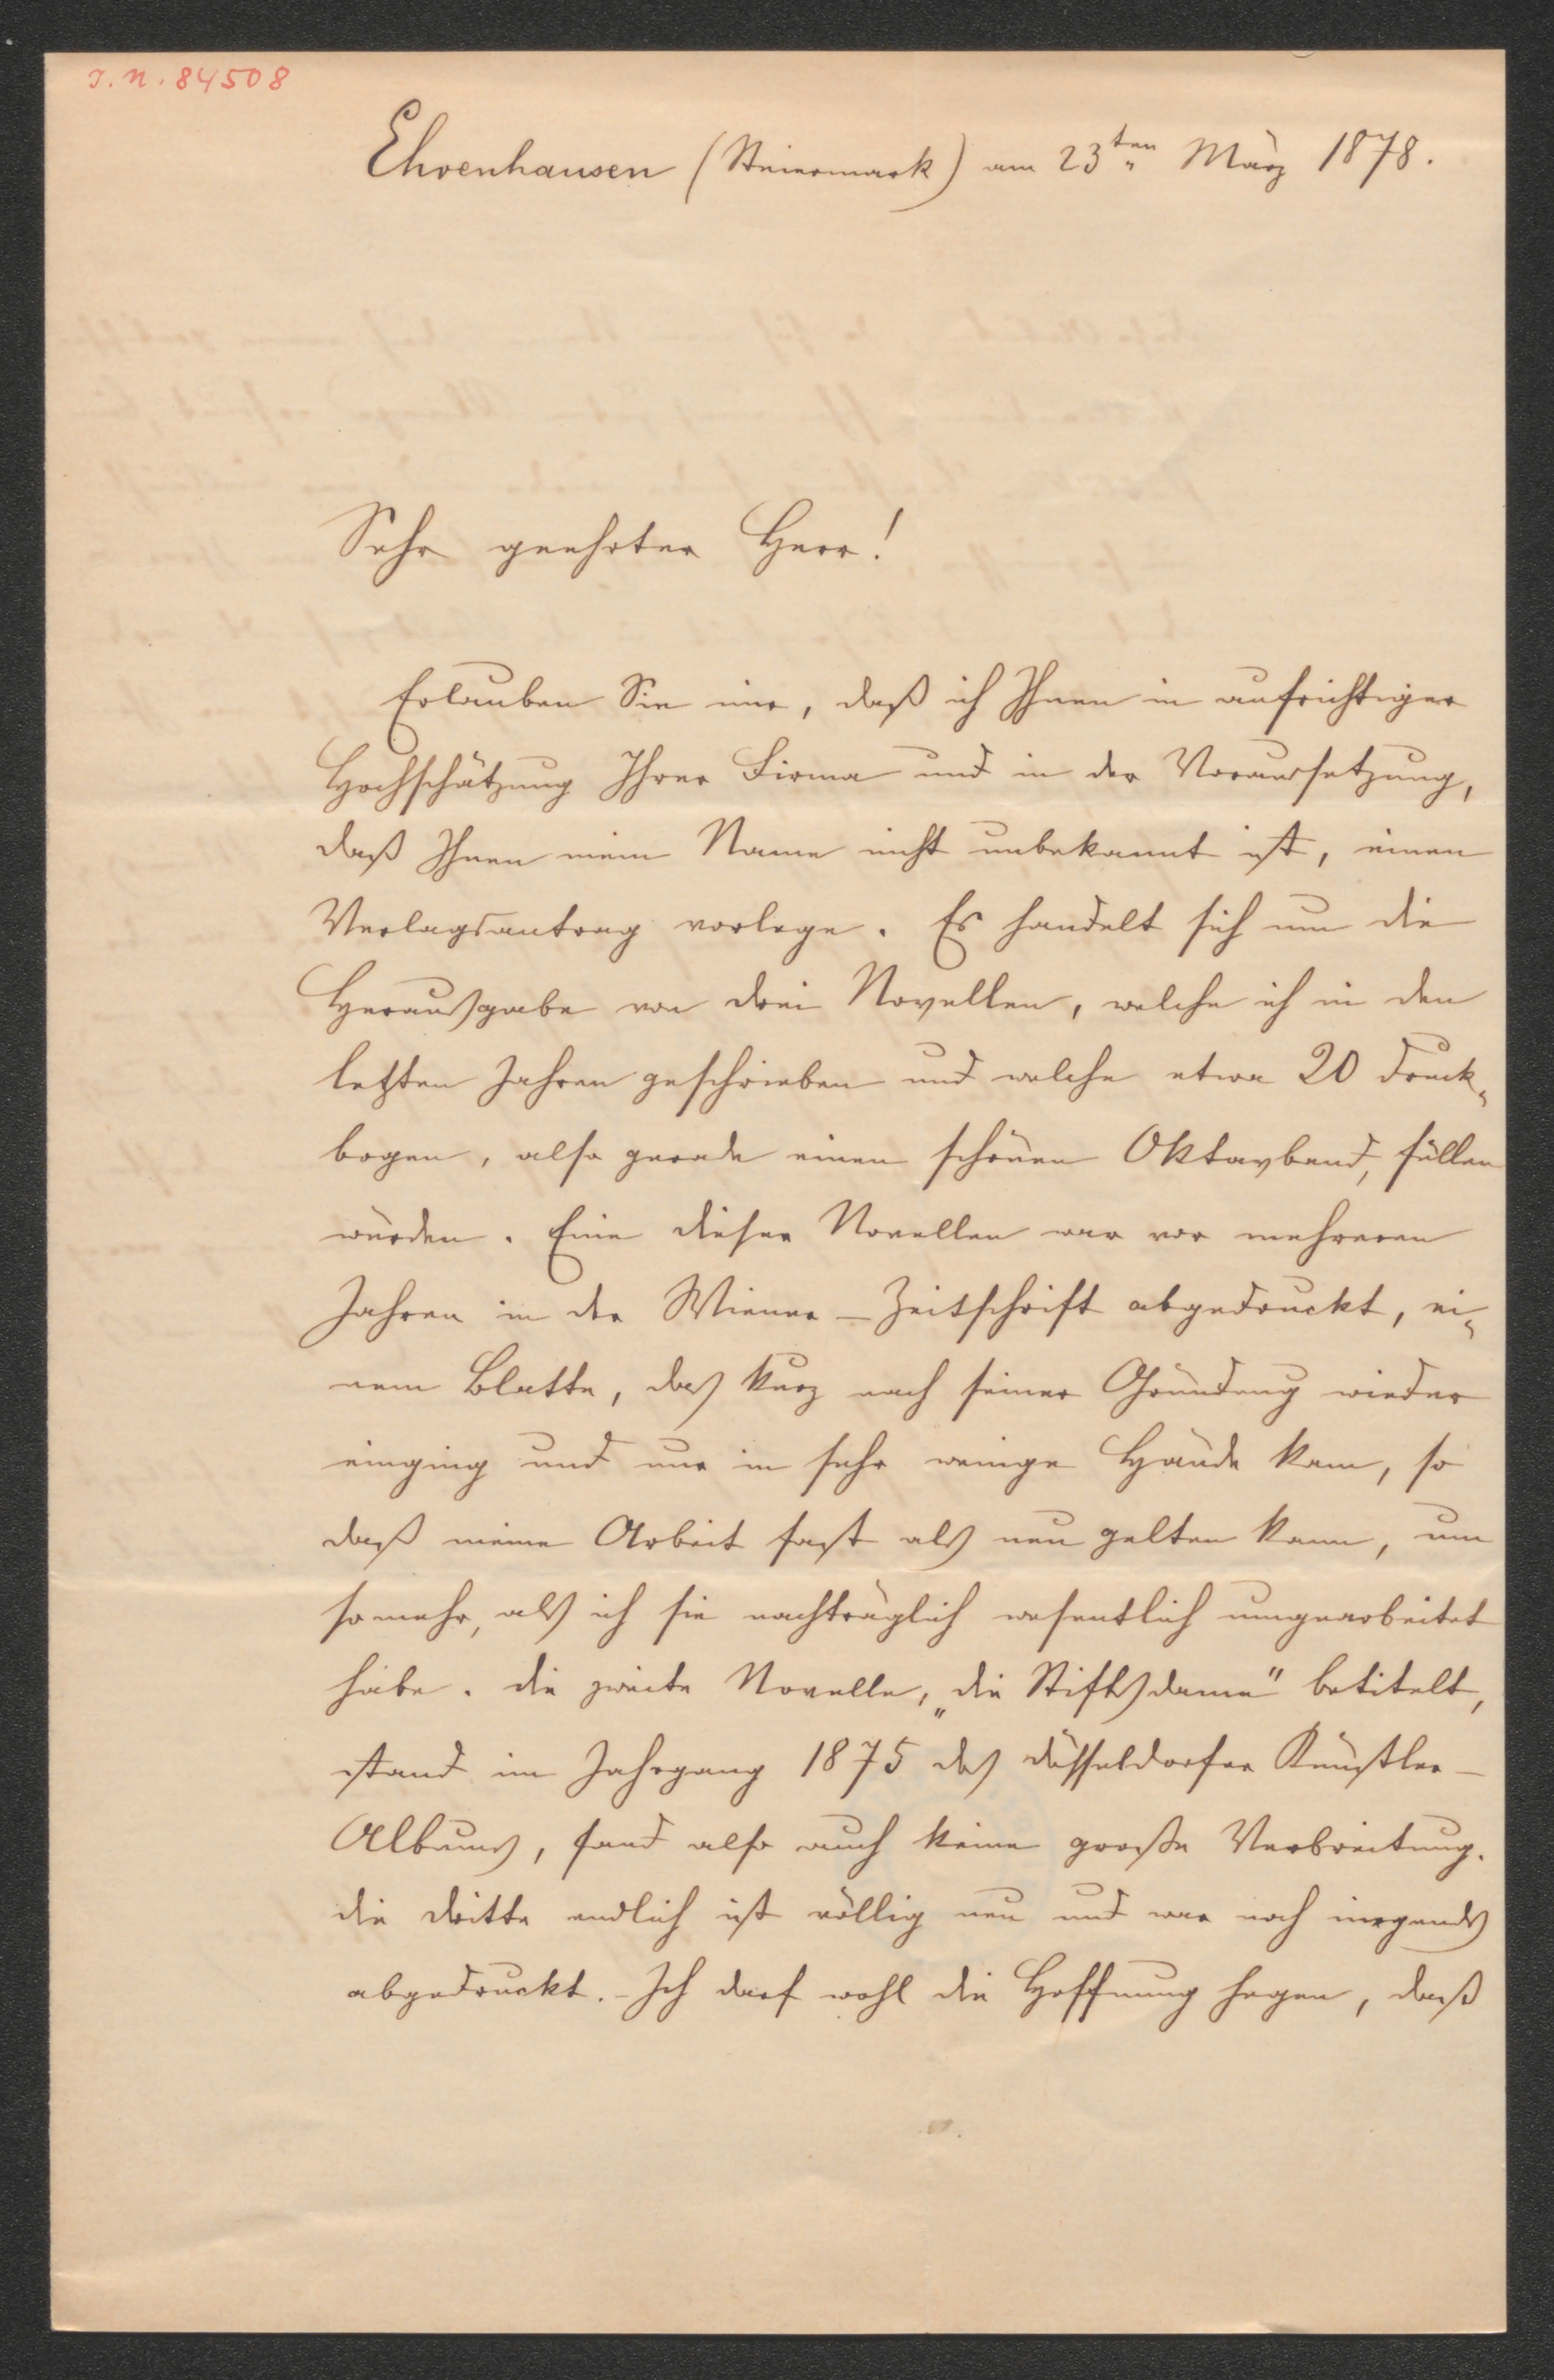 I. N. 84508
Ehrenhausen (Steiermark) am 23ten März 1878.
Sehr geehrter Herr!
Erlauben Sie mir, daß ich Ihnen in aufrichtiger
Hochschätzung Ihrer Firma und in der Voraussetzung,
daß Ihnen mein Name nicht unbekannt ist, einen
Verlagsantrag vorlege. Es handelt sich um die
Herausgabe von drei Novellen, welche ich in den
letzten Jahren geschrieben und welche etwa 20 Druck-
bogen, also gerade einen schönen Oktavband, füllen
würden. Eine dieser Novellen war vor mehreren
Jahren in der Wiener-Zeitschrift abgedruckt, ei-
nem Blatte, das kurz nach seiner Gründung wieder
einging und nur in sehr wenige Hände kam, so
daß meine Arbeit fast als neu gelten kann, um
so mehr, als ich sie nachträglich wesentlich umgearbeitet
habe. Die zweite Novelle, „die Stiftsdame" betitelt,
stand im Jahrgang 1875 des Düsseldorfer Künstler-
Albums, fand also auch keine große Verbreitung.
Die dritte endlich ist völlig neu und war noch nirgends
abgedruckt. - Ich darf wohl die Hoffnung hegen, daß